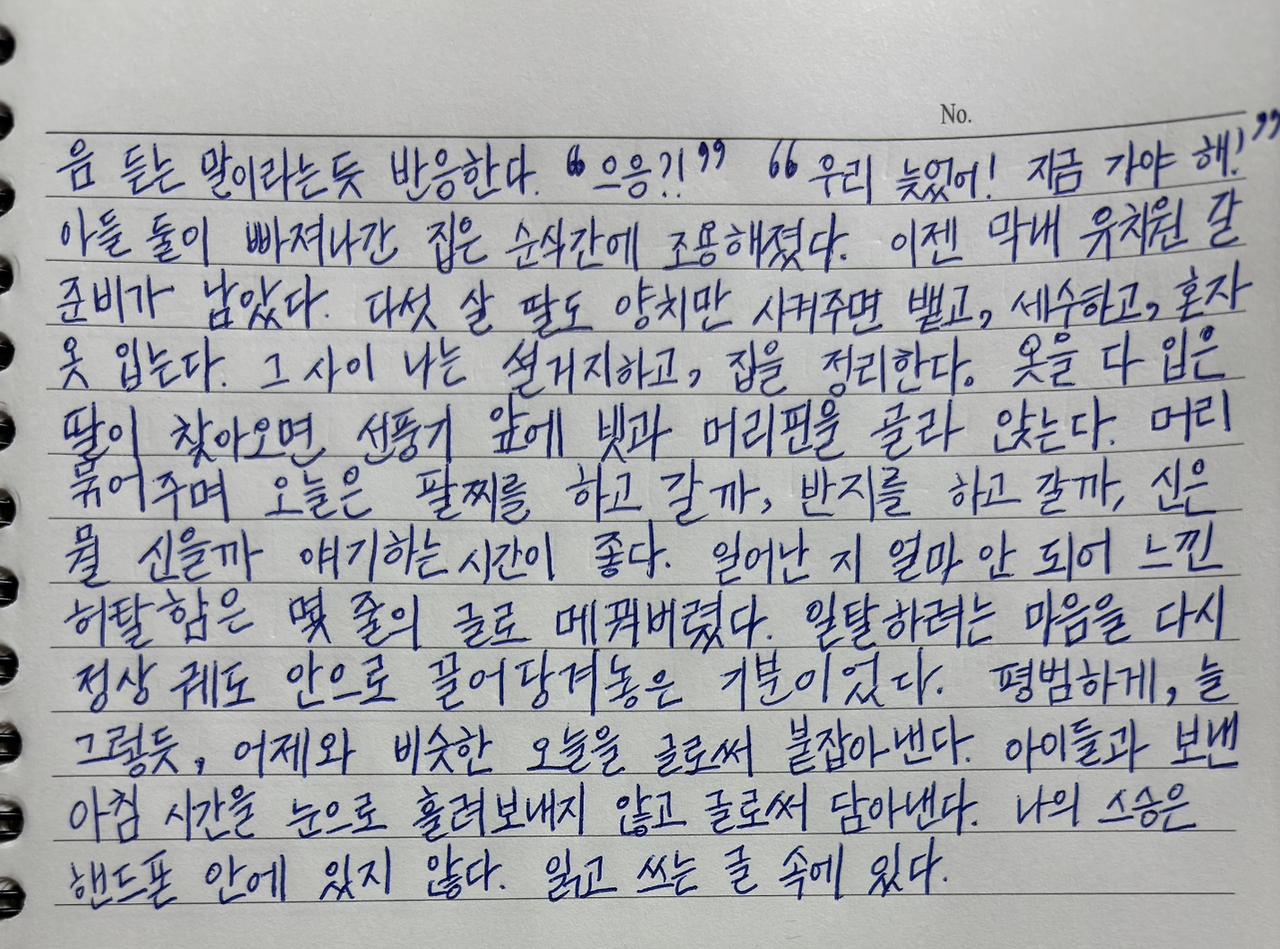 No.
음 듣는 말이라는듯 반응한다. “으응?!” “우리 늦었어! 지금 가야 해!”
아들 둘이 빠져나간 집은 순식간에 조용해졌다. 이젠 막내 유치원 갈
준비가 남았다. 다섯 살 딸도 양치만 시켜주면 뱉고, 세수하고, 혼자
옷 입는다. 그 사이 나는 설거지하고, 집을 정리한다. 옷을 다 입은
딸이 찾아오면, 선풍기 앞에 빗과 머리핀을 골라 앉는다. 머리
묶어주며 오늘은 팔찌를 하고 갈까, 반지를 하고 갈까, 신은
뭘 신을까 얘기하는 시간이 좋다. 일어난 지 얼마 안 되어 느낀
허탈함은 몇 줄의 글로 메꿔버렸다. 일탈하려는 마음을 다시
정상 궤도 안으로 끌어당겨놓은 기분이었다. 평범하게, 늘
그렇듯, 어제와 비슷한 오늘을 글로써 붙잡아낸다. 아이들과 보낸
아침 시간을 눈으로 흘려보내지 않고 글로써 담아낸다. 나의 스승은
핸드폰 안에 있지 않다. 읽고 쓰는 글 속에 있다.